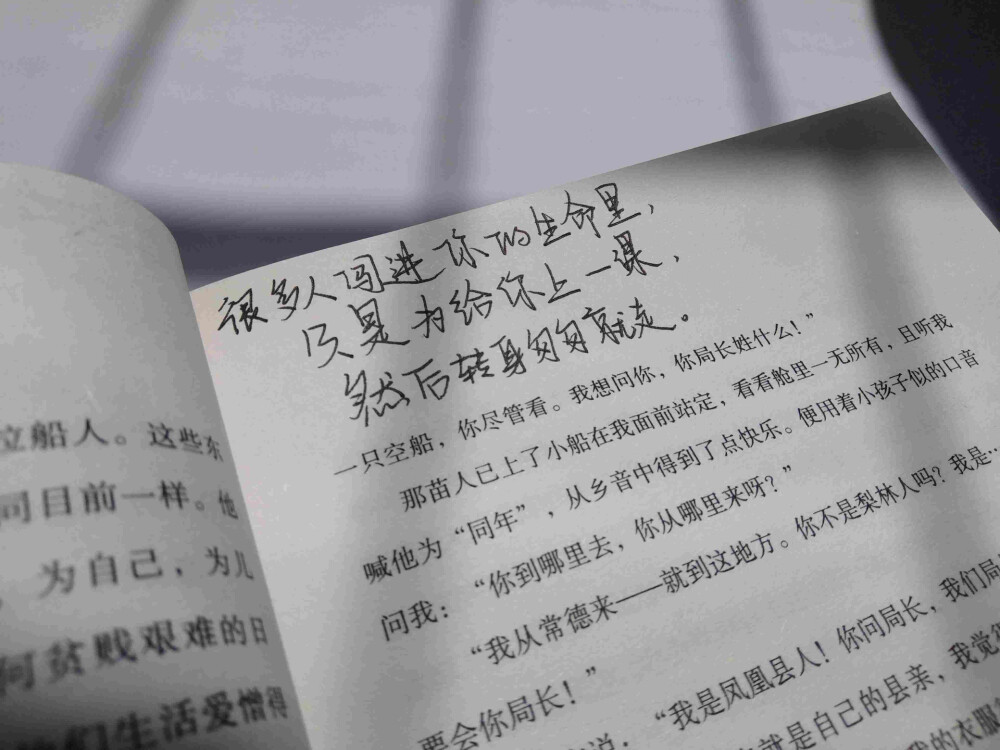 很多人闯进你的生命里,
只是为给你上一课,
然后转身匆匆就走。
一只空船，你尽管看。我想问你，你局长姓什么！”
那苗人已上了小船在我面前站定，看看舱里一无所有，且听我
喊他为“同年”，从乡音中得到了点快乐。便用着小孩子似的口音
问我：
“你到哪里去，你从哪里来呀？”
“我从常德来——就到这地方。你不是梨林人吗？我是…
要会你局长！”
“我是凤凰县人！你问局长，我们局
就是自己的县亲，我觉
的衣服
船人。这些东
同目前一样。他
为自己，为儿
何贫贱艰难的日
们生活爱憎得